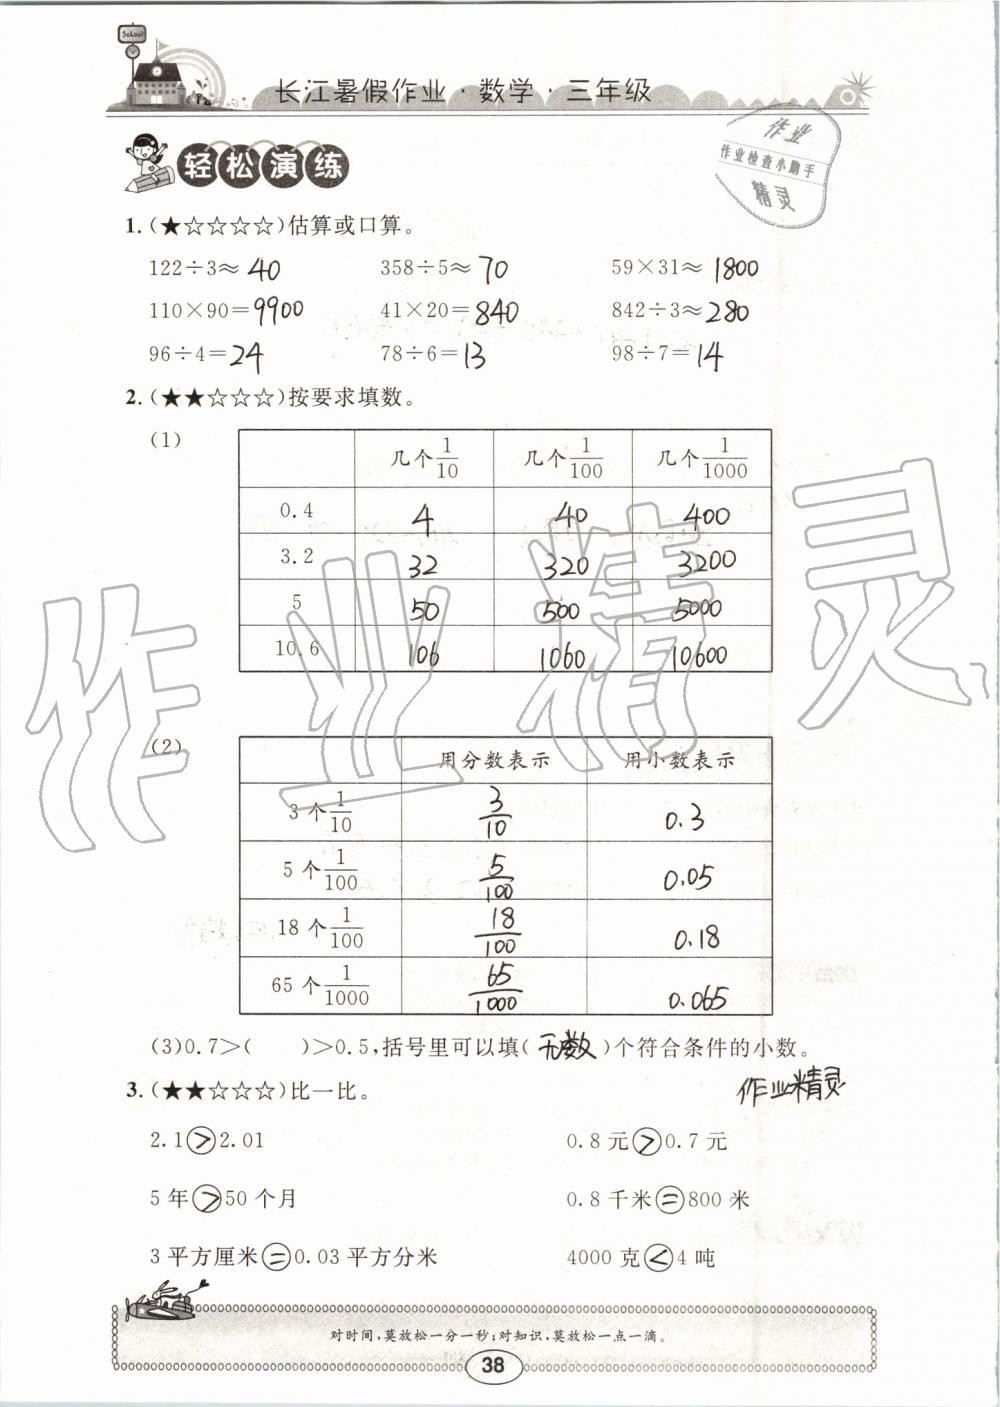 School
长江暑假作业·数学·三年级
轻松演练
作业
作业检查小助手
精灵
1.(★☆☆☆☆)估算或口算。
122÷3≈40 358÷5≈70 59×31≈1800
110×90=9900 41×20=840 842÷3≈280
96÷4=24 78÷6=13 98÷7=14
2.(★★☆☆☆)按要求填数。
(1)
几个1/10 几个1/100 几个1/1000
0.4 4 40 400
3.2 32 320 3200
5 50 500 5000
10.6 106 1060 10600
作业精灵
(2)
用分数表示 用小数表示
3个1/10 3/10 0.3
5个1/100 5/100 0.05
18个1/100 18/100 0.18
65个1/1000 65/1000 0.065
(3)0.7>( )>0.5,括号里可以填(无数)个符合条件的小数。
3.(★★☆☆☆)比一比。
作业精灵
2.1>2.01 0.8元>0.7元
5年>50个月 0.8千米=800米
3平方厘米=0.03平方分米 4000克<4吨
对时间,莫放松一分一秒;对知识,莫放松一点一滴。
38